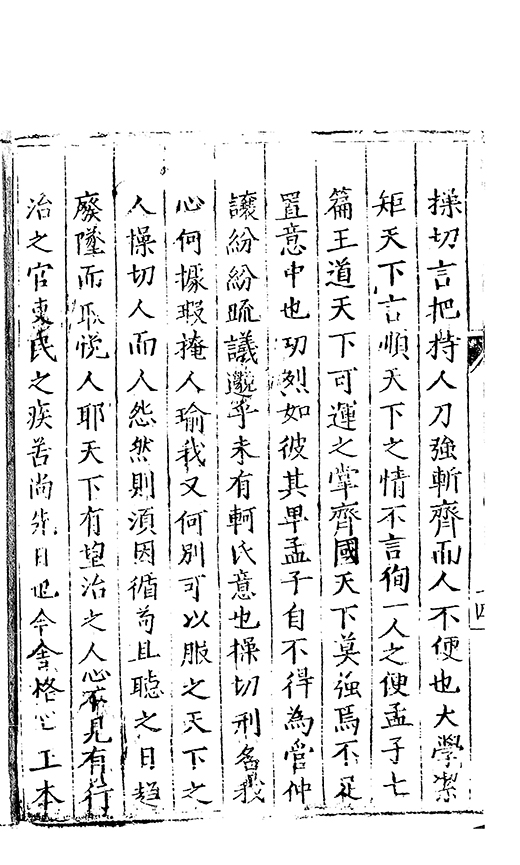 操切言把持人刀強斬齊而人不便也大學潔
矩天下言順天下之情不言徇一人之便孟子七
篇王道天下可運之掌齊國天下莫強焉不足
置意中也功烈如彼其卑孟子自不得為管仲
讓紛紛疏議邈乎未有軻氏意也操切刑名我
心何據瑕掩人瑜我又何別可以服之天下之
人操切人而人怨然則須因循苟且聽之日趋
廢墜而取悅人耶天下有望治之人心不見有行
治之官吏民之疾苦尚先日也今舍格心工本
四